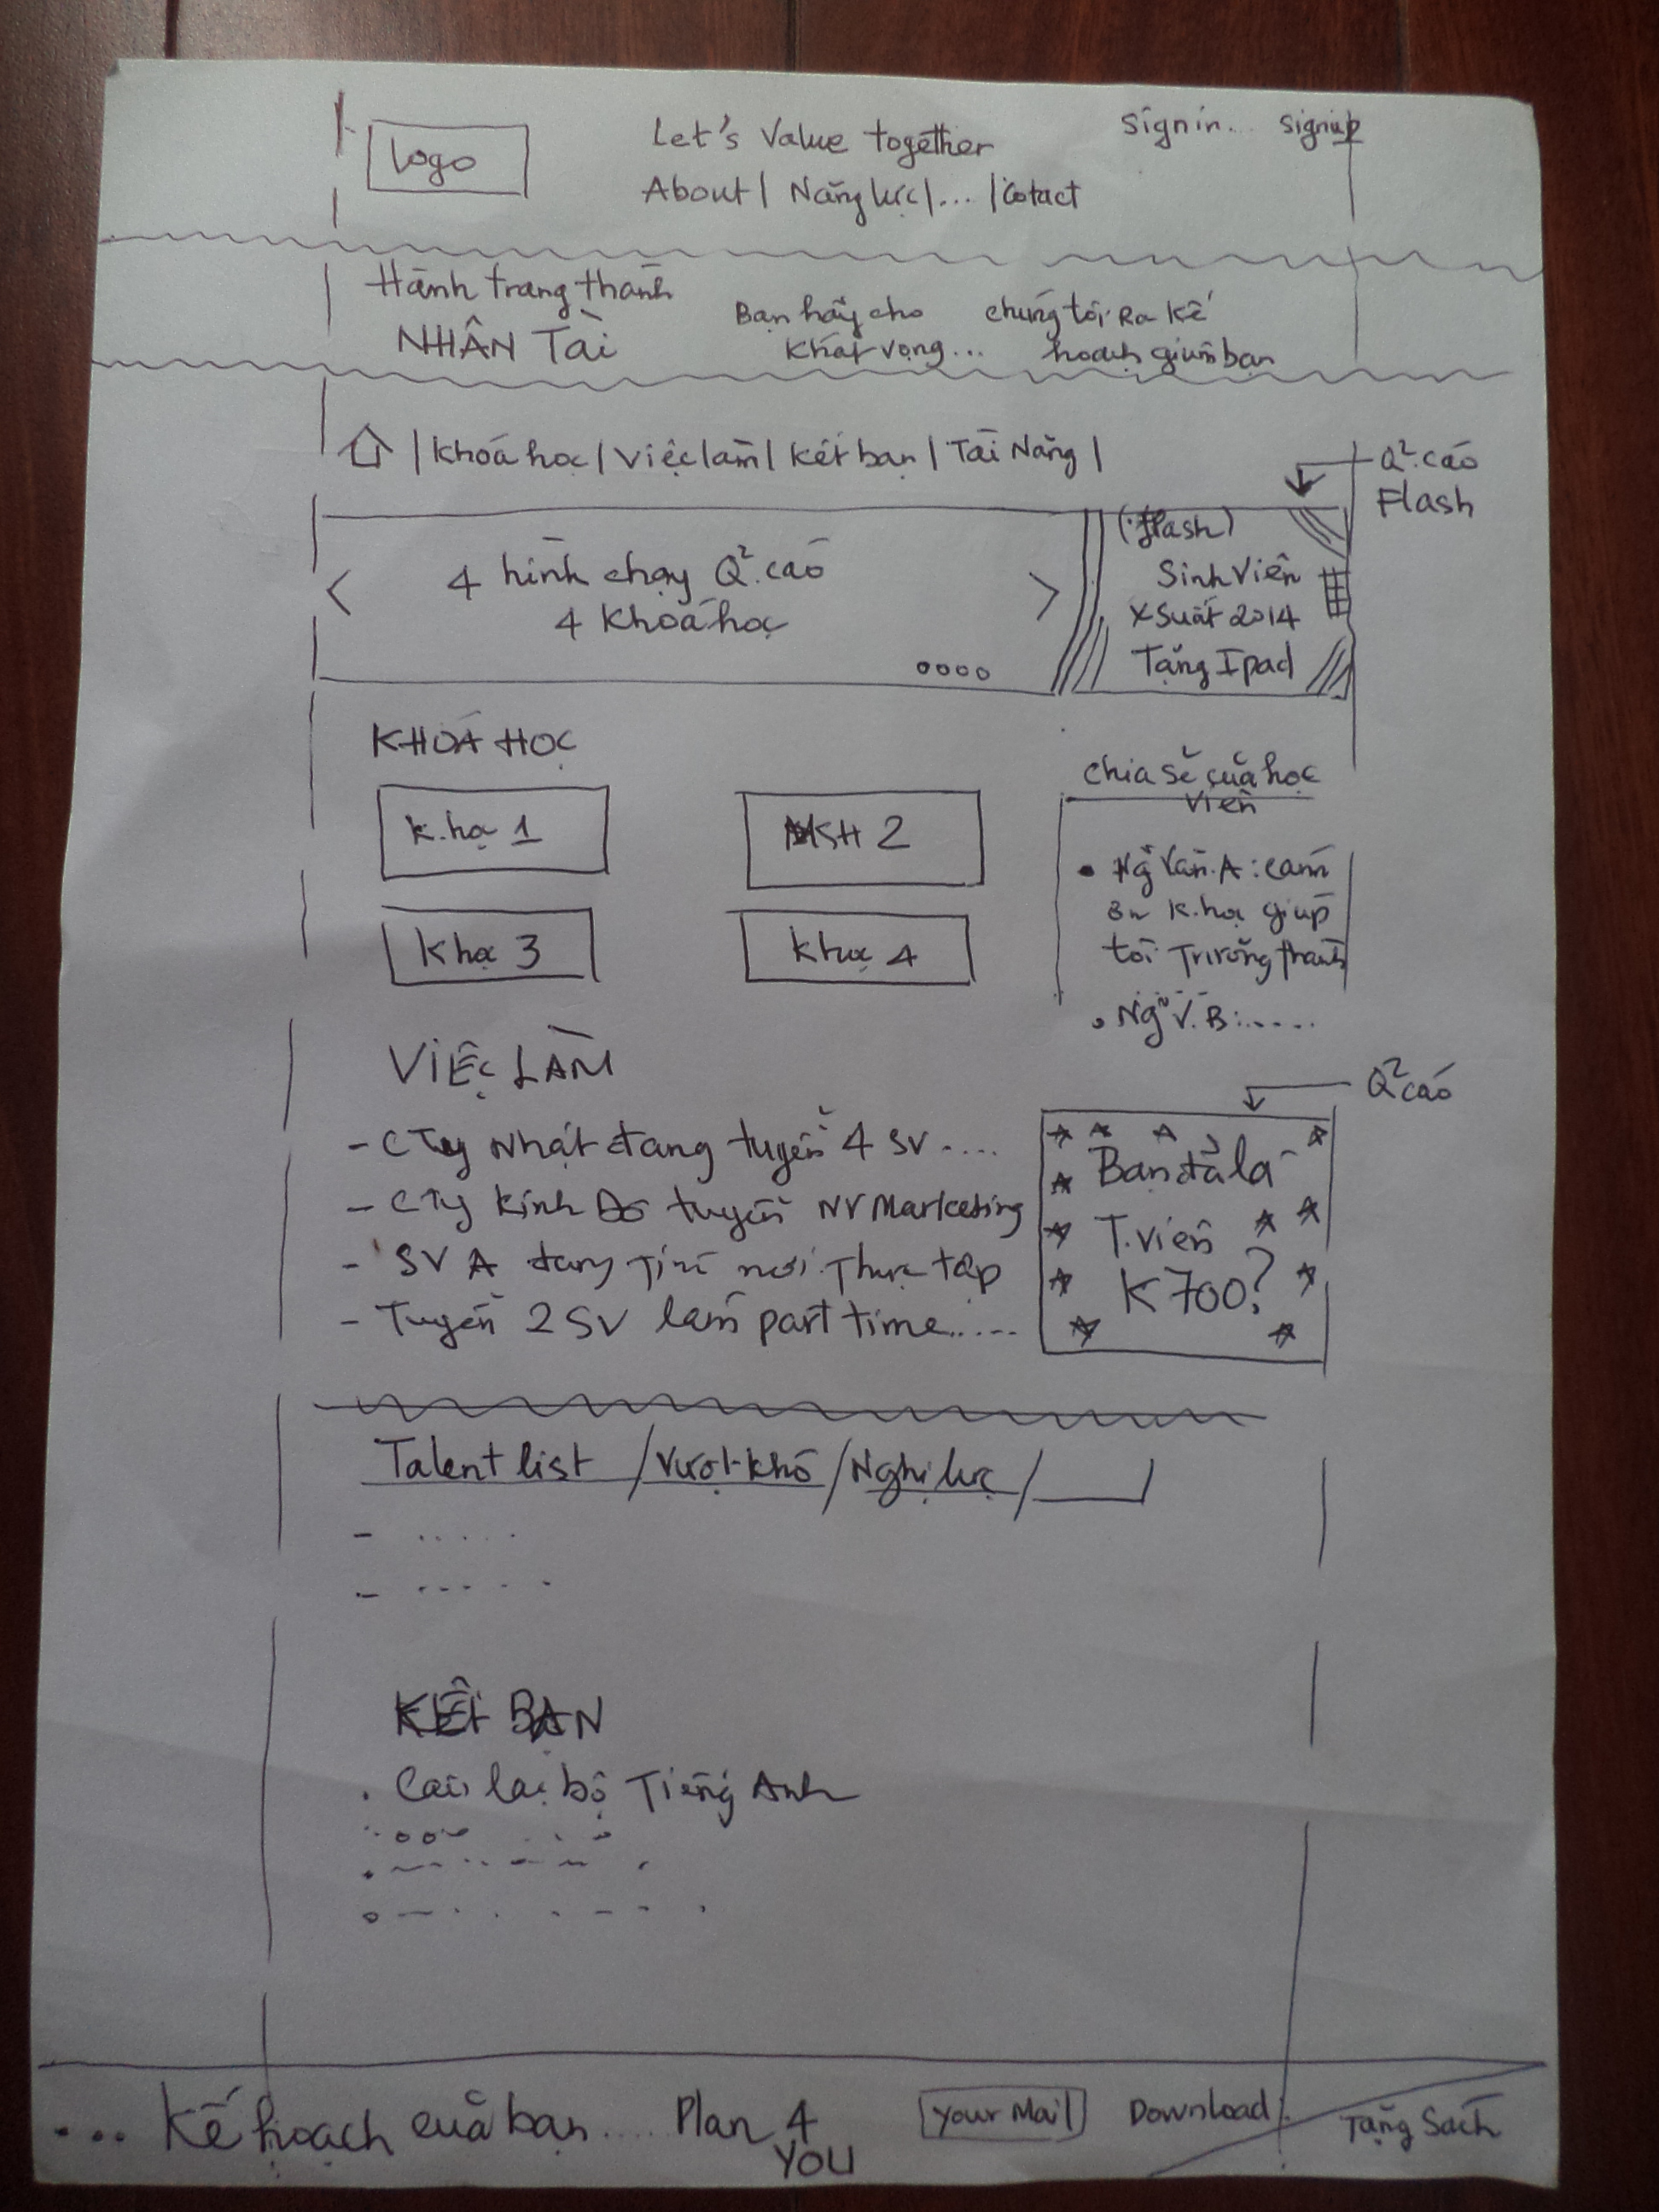 Logo
Let's Value together
Signin... Signup
About | Năng lực | ... | Cotact
Hành trang thành
NHÂN Tài
Bạn hãy cho
khát vọng...
chúng tôi Ra kế
hoạch giùm bạn
| Khoá học | Việc làm | Kết bạn | Tài Năng |
Q².cáo
Flash
< 4 hình chạy Q².cáo >
4 Khoá học
(flash)
Sinh Viên
X Suất 2014
Tặng Ipad
KHOÁ HỌC
K.học 1
KH 2
Khọc 3
Khọc 4
Chia sẻ của học
viên
• Ng Văn.A: cám
ơn K.học giúp
tôi Trưởng thành
• Ng V.B:.....
VIỆC LÀM
- CTy Nhật đang tuyển 4 SV....
- CTy Kinh Đô tuyển NV Marketing
- SV A đang Tìm nơi Thực tập
- Tuyển 2 SV làm part time.....
Q² cáo
Bạn đã là
T.viên
K700?
Talent list / Vượt khó / Nghị lực /
- .....
- .....
KẾT BẠN
. Câu lạc bộ Tiếng Anh
... Kế hoạch của bạn.... Plan 4
YOU
Your Mail
Download
Tặng Sách